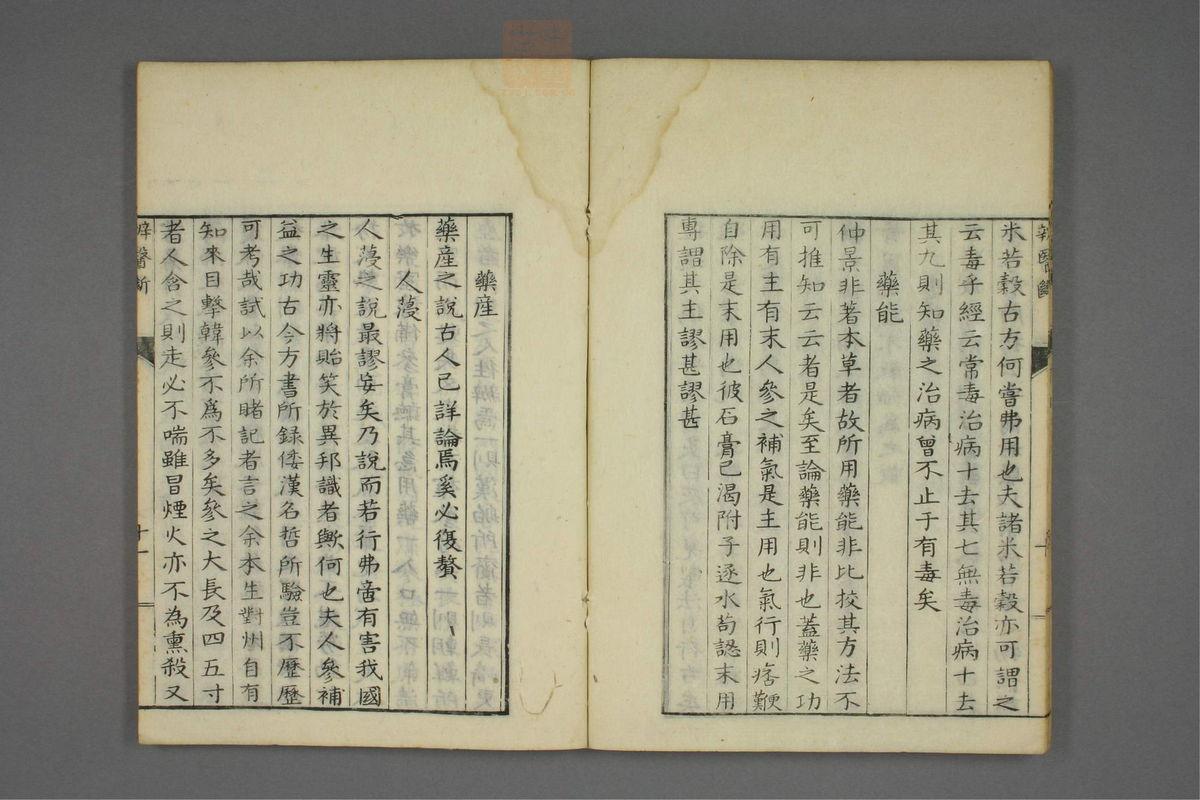 米若穀古方何嘗弗用也夫諸米若穀亦可謂之
云毒乎經云常毒治病十去其七無毒治病十去
其九則知藥之治病曾不止于有毒矣
藥能
仲景非著本草者故所用藥能非比挍其方法不
可推知云云者是矣至論藥能則非也蓋藥之功
用有主有末人參之補氣是主用也氣行則痞鞕
自除是末用也彼石膏已渴附子逐水苟認末用
專謂其主謬甚謬甚
藥産
藥産之說古人已詳論焉奚必復贅
人葠
人葠之說最謬妄矣乃說而若行弗啻有害我國
之生靈亦將貽笑於異邦識者歟何也夫人參補
益之功古今方書所録倭漢名哲所驗豈不歷歷
可考哉試以余所睹記者言之余本生對州自有
知來目擊韓參不爲不多矣參之大長及四五寸
者人含之則走必不喘雖冒煙火亦不為熏殺又
辨醫斷
十一